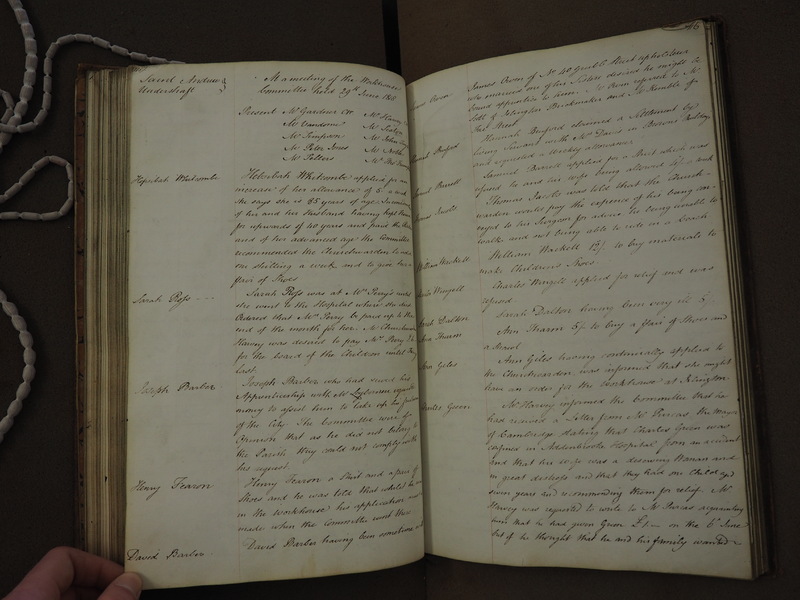 Saint Andrew
Undershaft
At a meeting of the Workhouse
Committee held 29th June 18
Present Mr Gardiner CW Mr Harvey
Mr Vandome
Mr Simpson Mr John
Mr Peter Jones Mr North
Mr Peters Mr Thos
Hepzibah Whitcombe
Hebzibah Whitcombe applied for an
increase of her allowance of 5 a week
she says she is 85 years of age. In consideration
of her and her Husband having kept House
for upwards of 40 years and paid the
and of her advanced age the Committee
recommended the Churchwarden to add
one shilling a week and to give her a
pair of Shoes
Sarah Ross
Sarah Ross was at Mrs Perry's until
she went to the Hospital where she died
Ordered that Mrs Perry be paid up to the
end of the month for her. Mr Churchwarden
Harvey was desired to pay Mrs Perry
for the board of the Children until
last.
Joseph Barber
Joseph Barber who had served his
Apprenticeship with Mr
money to assist him to take up his freedom
of the City. The Committee was of
Opinion that as he did not belong to
the Parish they could not comply with
his request.
Henry Fearon
Henry Fearon a Shirt and a pair of
Shoes and he was told that whilst he was
in the workhouse his application must be
made when the Committee went there
David Barber
David Barber having been sometime
46
James Owen
James Owen of No 40 Grubb Street upholsterer
who married one of her Sisters desired he might be
bound apprentice to him. Mr Owen referred to Mr
Sell of Islington Brickmaker and Mr Kemble of
the Street.
Hannah Buxford
Hannah Buxford claimed a Settlement by
living Servant with Mr Davis in Bevois Buildings
and requested a weekly allowance
Samuel Burrell
Samuel Burrell applied for a Shirt which was
refused to and his wife being allowed 4/ a week
Thomas Jacobs
Thomas Jacobs was told that the Church-
warden would pay the expence of his being con-
veyed to his Surgeon for advice he being unable to
walk and not being able to ride in a Coach
William Hackell
William Hackell 12/ to buy materials to
make Childrens Shoes.
Charles Wingell
Charles Wingell applied for relief and was
refused.
Sarah Dalton
Sarah Dalton having been very ill 5/
Ann Thurm
Ann Thurm 5/ to buy a Pair of Shoes and
a Shawl
Ann Giles
Ann Giles having continually applied to
the Churchwarden was informed that she might
have an order for the Workhouse at Islington
Charles Green
Mr Harvey informed the Committee that he
had received a Letter from Mr Purcas the Mayor
of Cambridge stating that Charles Green was
confined in Addenbrooks Hospital from an accident
and that his wife was a deserving Woman and
in great distress and that they had one Child aged
seven years and recommending them for relief. Mr
Harvey was requested to write to Mr Purcas acquainting
him that he had given Green £1.— on the 6th June
but if he thought that he and his family wanted